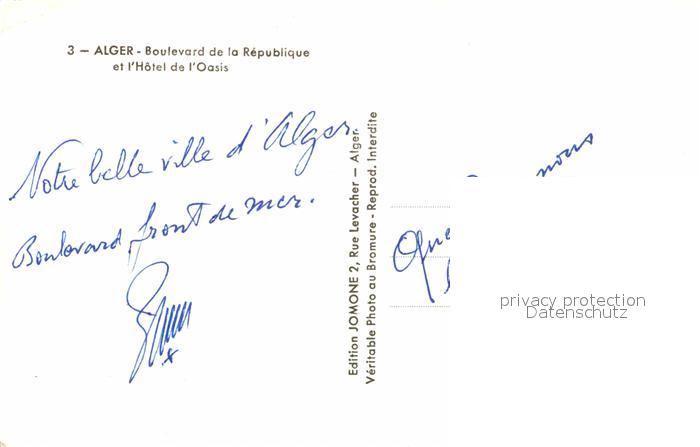 3 — ALGER - Boulevard de la République
et l'Hôtel de l'Oasis
Notre belle ville d'Alger.
Boulevard front de mer.
Edition JOMONE 2, Rue Levacher — Alger.
Véritable Photo au Bromure - Reprod. Interdite
nous
privacy protection
Datenschutz